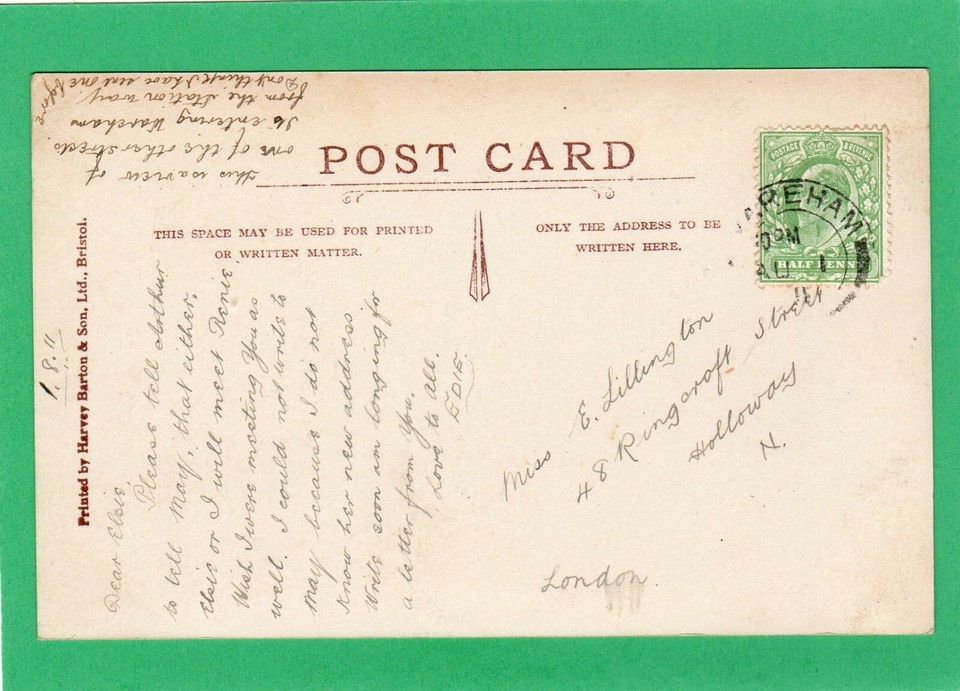 POST CARD
THIS SPACE MAY BE USED FOR PRINTED
OR WRITTEN MATTER.
ONLY THE ADDRESS TO BE
WRITTEN HERE.
Printed by Harvey Barton & Son, Ltd., Bristol.
1.8.11
this is a view of
one of the other streets.
Is entering Wareham
from the station way.
Don't think I have sent one before
Dear Elsie
Please tell Arthur
to tell May, that either,
Elsie or I will meet Renie
Wish I were meeting You as
well. I could not write to
May because I do not
Know her new address
Write soon am longing for
a letter from You.
Love to all.
EDIE
Miss E. Lillington
48 Ringcroft Street
Holloway
N.
London.
POSTAGE & REVENUE
HALF PENNY
AREHAM
PM
AU 1
11